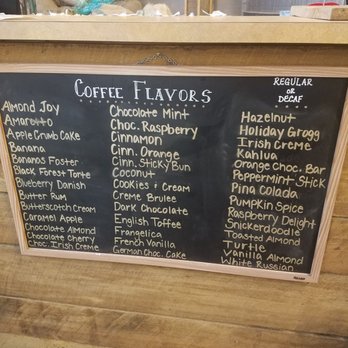 COFFEE FLAVORS
REGULAR
OR
DECAF
Almond Joy
Amaretto
Apple Crumb Cake
Banana
Bananas Foster
Black Forest Torte
Blueberry Danish
Butter Rum
Butterscotch Cream
Caramel Apple
Chocolate Almond
Chocolate Cherry
Choc. Irish Creme
Chocolate Mint
Choc. Raspberry
Cinnamon
Cinn. Orange
Cinn. Sticky Bun
Coconut
Cookies & Cream
Creme Brulee
Dark Chocolate
English Toffee
Frangelica
French Vanilla
German Choc. Cake
Hazelnut
Holiday Grogg
Irish Creme
Kahlua
Orange Choc. Bar
Peppermint Stick
Pina Colada
Pumpkin Spice
Raspberry Delight
Snickerdoodle
Toasted Almond
Turtle
Vanilla Almond
White Russian